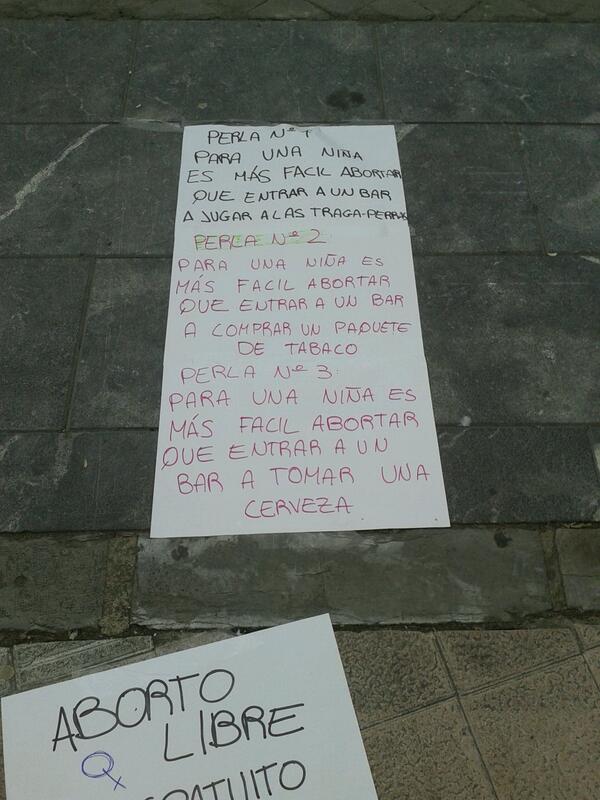 PERLA Nº 1
PARA UNA NIÑA
ES MÁS FACIL ABORTAR
QUE ENTRAR A UN BAR
A JUGAR A LAS TRAGA-PERRAS
PERLA Nº 2
PARA UNA NIÑA ES
MÁS FACIL ABORTAR
QUE ENTRAR A UN BAR
A COMPRAR UN PAQUETE
DE TABACO
PERLA Nº 3:
PARA UNA NIÑA ES
MÁS FACIL ABORTAR
QUE ENTRAR A UN
BAR A TOMAR UNA
CERVEZA
ABORTO
LIBRE
GRATUITO